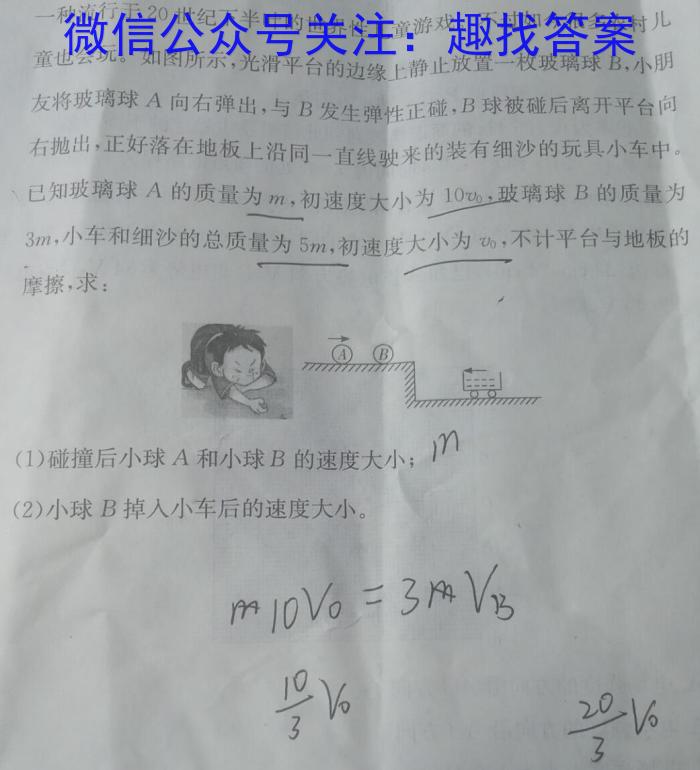 一种流行于20世纪下半叶的世界性儿童游戏
微信公众号关注：趣找答案
童也会玩。如图所示，光滑平台的边缘上静止放置一枚玻璃球B，小朋
友将玻璃球A向右弹出，与B发生弹性正碰，B球被碰后离开平台向
右抛出，正好落在地板上沿同一直线驶来的装有细沙的玩具小车中。
已知玻璃球A的质量为m，初速度大小为10v₀，玻璃球B的质量为
3m，小车和细沙的总质量为5m，初速度大小为v₀，不计平台与地板的
摩擦，求：
A B
(1)碰撞后小球A和小球B的速度大小；
m
(2)小球B掉入小车后的速度大小。
m10V₀=3mV_B
10/3 V₀
20/3 V₀